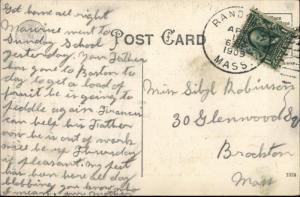 Got home all right
Maurice went to
Sunday School
yesterday. Your Father
has gone to Boston to
day to get a load of
fruit he is going to
peddle again Francis
can help his Father
now he is out of work
will be up Thursday
if pleasant. my feet
has been here all day
blobbing you know what
I meant. mother
POST CARD
RAND
AP
6
1909
MASS.
Miss Sibyl Robinson
30 Glenwood Sq
Brockton
Mass